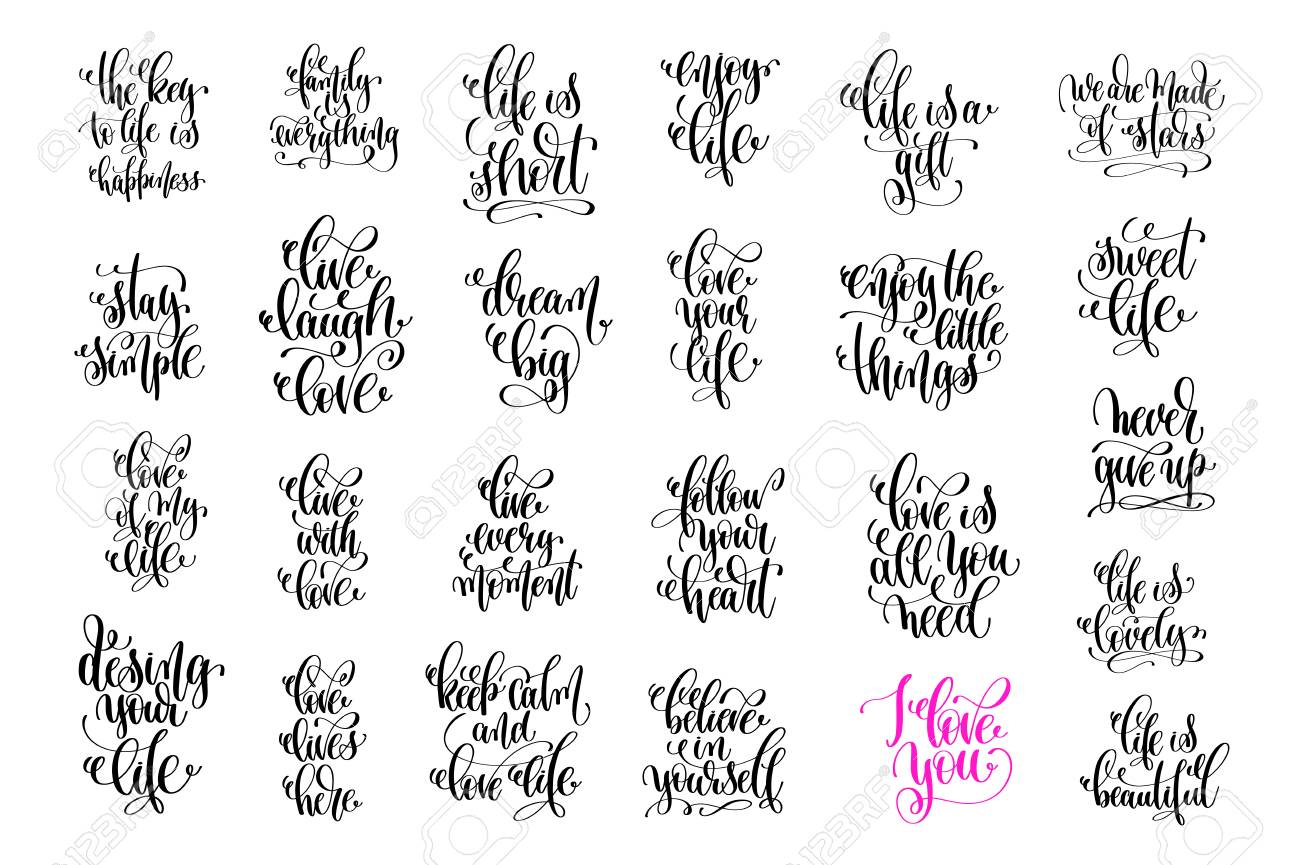 the key
to life is
happiness
family
is
everything
life is
short
enjoy
life
life is a
gift
we are made
of stars
stay
simple
live
laugh
love
dream
big
love
your
life
enjoy the
little
things
sweet
life
never
give up
love
of my
life
live
with
love
live
every
moment
follow
your
heart
love is
all you
need
life is
lovely
desing
your
life
love
lives
here
keep calm
and
love life
believe
in
yourself
I love
you
life is
beautiful
123RF